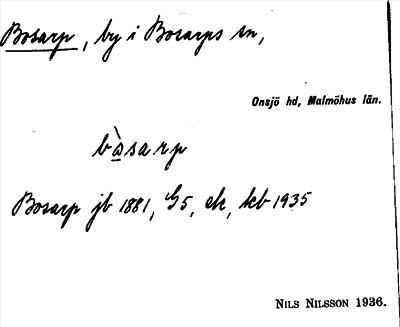 Bosarp, by i Bosarps sn,
Onsjö hd, Malmöhus län.
bòsarp
Bosarp jb 1881, G5, ek, kb 1935
NILS NILSSON 1936.